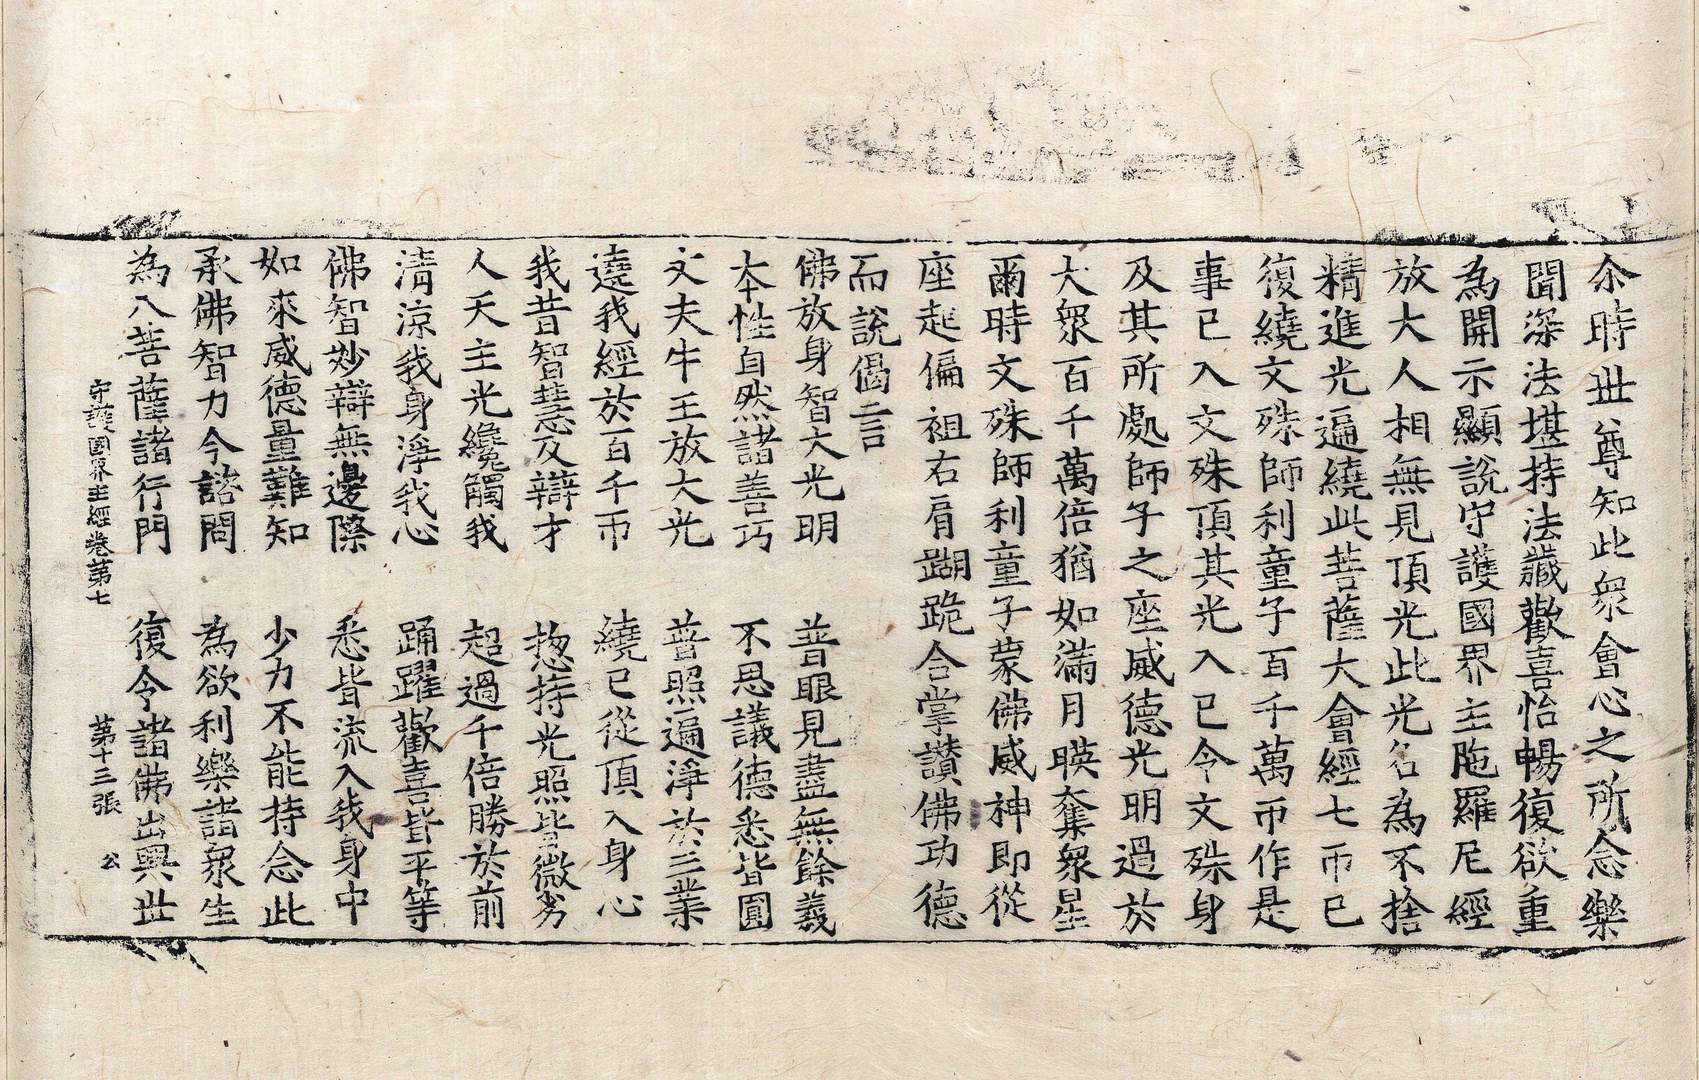 尒時世尊知此衆會心之所念樂
聞深法堪持法藏歡喜怡暢復欲重
為開示顯說守護國界主陁羅尼經
放大人相無見頂光此光名為不捨
精進光遍繞此菩薩大會經七帀已
復繞文殊師利童子百千萬帀作是
事已入文殊頂其光入已令文殊身
及其所處師子之座威德光明過於
大衆百千萬倍猶如滿月暎奪衆星
爾時文殊師利童子蒙佛威神即從
座起偏袒右肩䠒跪合掌讃佛功德
而說偈言
佛放身智大光明　普眼見盡無餘義
本性自然諸善巧　不思議德悉皆圓
丈夫牛王放大光　普照遍淨於三業
遶我經於百千帀　繞已從頂入身心
我昔智慧及辯才　惣持光照皆微劣
人天主光纔觸我　超過千倍勝於前
清涼我身淨我心　踊躍歡喜皆平等
佛智妙辯無邊際　悉皆流入我身中
如來威德量難知　少力不能持念此
承佛智力今諮問　為欲利樂諸衆生
為八菩薩諸行門　復令諸佛出興世
守護國界主經卷第七　第十三張　公